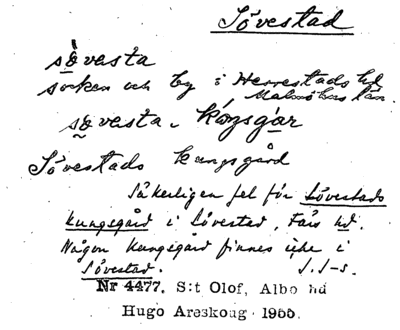 Sövestad
sö̀vesta
socken och by i Herrestads hd
Malmöhus län.
sövesta- kóŋsgár
Sövestads kungsgård
Säkerligen fel för Lövestads
kungsgård i Lövestad, Färs hd.
Någon kungsgård finnes icke i
Sövestad. I. I-s.
Nr 4477. S:t Olof, Albo hd
Hugo Areskoug 1955.